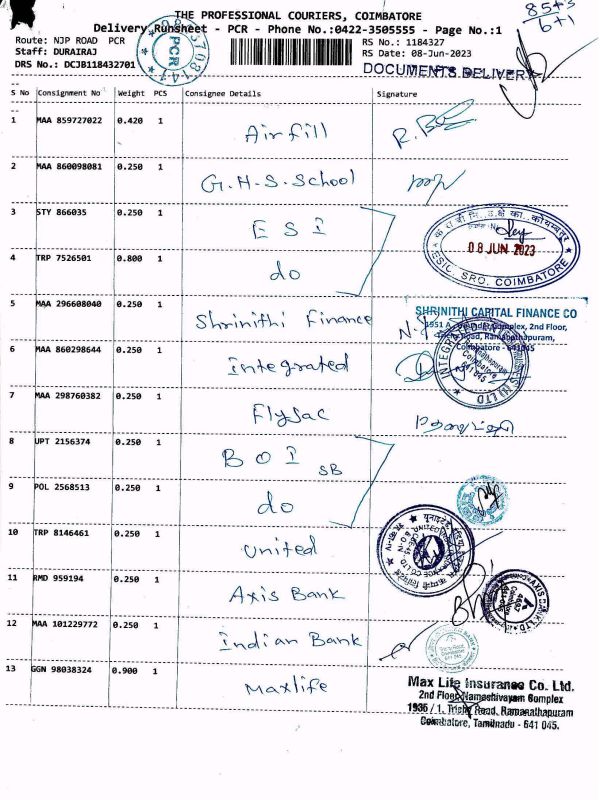 THE PROFESSIONAL COURIERS, COIMBATORE
85+3
6+1
Delivery Runsheet - PCR - Phone No.:0422-3505555 - Page No.:1
Route: NJP ROAD PCR
RS No.: 1184327
Staff: DURAIRAJ
RS Date: 08-Jun-2023
DRS No.: DCJB118432701
PCR
DOCUMENTS DELIVERY
S No Consignment No Weight PCS Consignee Details Signature
1 MAA 859727022 0.420 1 Airfill
2 MAA 860098081 0.250 1 G.H.S.School
3 STY 866035 0.250 1 ESI
08 JUN 2023
ESIC, SRO, COIMBATORE
4 TRP 7526501 0.800 1 do
5 MAA 296608040 0.250 1 Shrinithi Finance
SHRINITHI CAPITAL FINANCE CO
Complex, 2nd Floor,
Road, Ramanathapuram,
Coimbatore - 641045
6 MAA 860298644 0.250 1 integrated
7 MAA 298760382 0.250 1 Flysac
8 UPT 2156374 0.250 1 BOI SB
9 POL 2568513 0.250 1 do
10 TRP 8146461 0.250 1 United
11 RMD 959194 0.250 1 Axis Bank
AXIS BANK LTD
12 MAA 101229772 0.250 1 Indian Bank
13 GGN 98038324 0.900 1 Maxlife
Max Life Insurance Co. Ltd.
2nd Floor, Namashivayam Complex
1936 / 1, Trichy Road, Ramanathapuram
Coimbatore, Tamilnadu - 641 045.